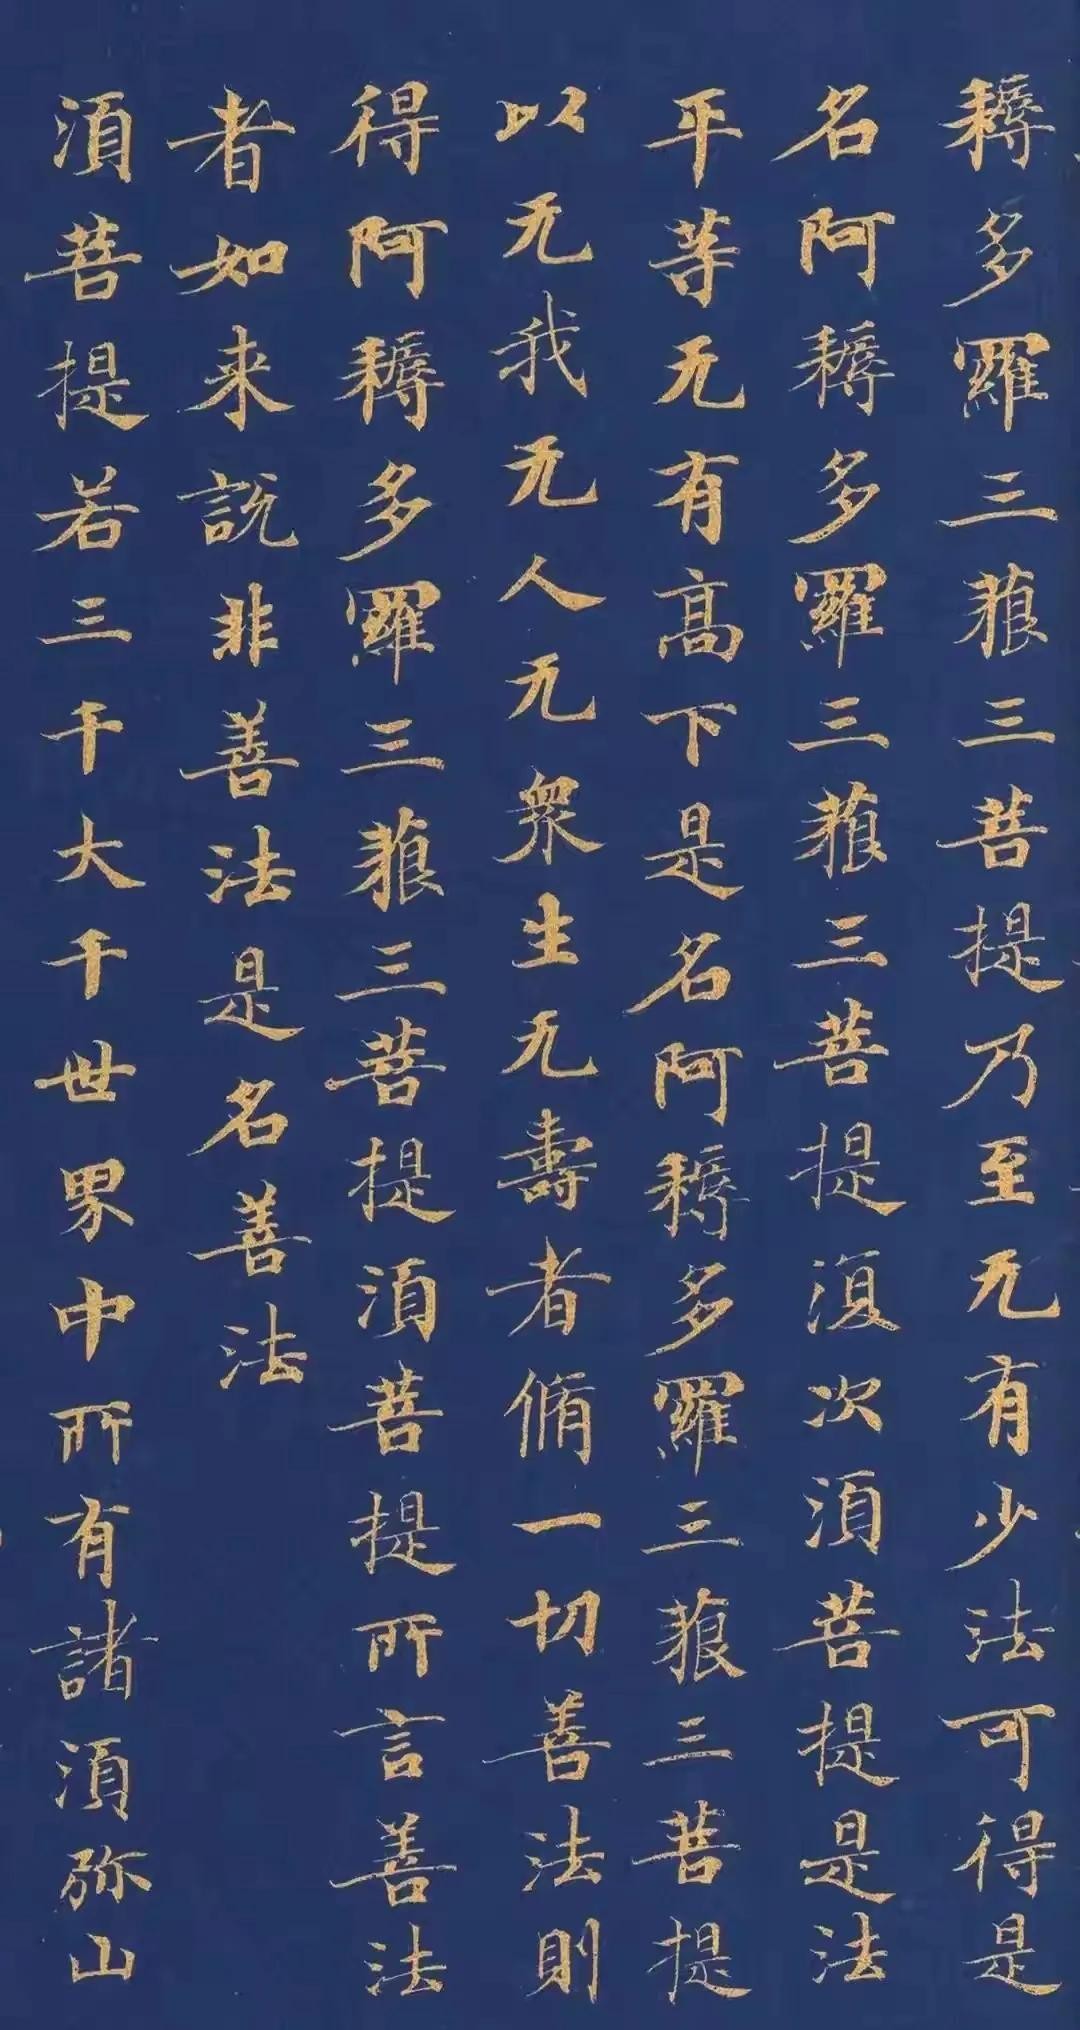 耨多羅三藐三菩提乃至无有少法可得是
名阿耨多羅三藐三菩提復次須菩提是法
平等无有高下是名阿耨多羅三藐三菩提
以无我无人无衆生无壽者脩一切善法則
得阿耨多羅三藐三菩提須菩提所言善法
者如来說非善法是名善法
須菩提若三千大千世界中所有諸須弥山